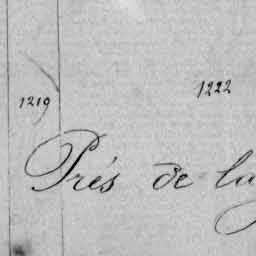 1222
1219
Prés de la